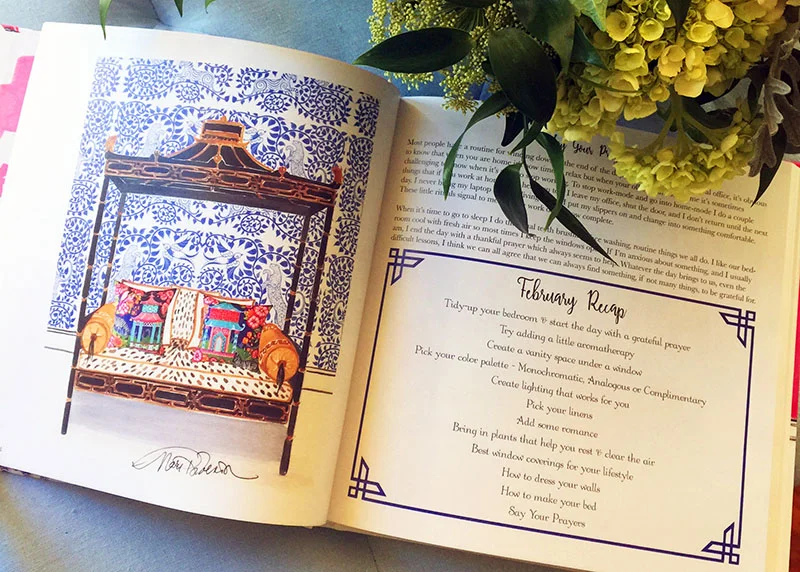 Your
Most people have a routine for winding down the end of the office, it's obvious
to know that when you are home time relax but when your it's sometimes
challenging to know when it's stop working. To stop work-mode and go into home-mode I do a couple
things that work at home. I leave my office, shut the door, and I don't return until the next
day. I never bring my laptop put my slippers on and change into something comfortable.
These little rituals signal to me work day is now complete.
When it's time to go to sleep I do the usual teeth brushing, face washing, routine things we all do. I like our bed-
room cool with fresh air so most times I keep the windows open. If I'm anxious about something, and I usually
am, I end the day with a thankful prayer which always seems to help. Whatever the day brings to us, even the
difficult lessons, I think we can all agree that we can always find something, if not many things, to be grateful for.
February Recap
Tidy-up your bedroom & start the day with a grateful prayer
Try adding a little aromatherapy
Create a vanity space under a window
Pick your color palette - Monochromatic, Analogous or Complimentary
Create lighting that works for you
Pick your linens
Add some romance
Bring in plants that help you rest & clear the air
Best window coverings for your lifestyle
How to dress your walls
How to make your bed
Say Your Prayers